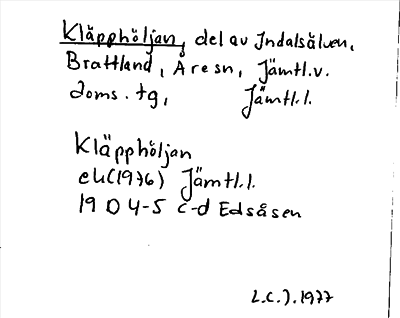 Kläpphöljan, del av Indalsälven,
Brattland, Åre sn, Jämtl.v.
doms. tg, Jämtl.l.
Kläpphöljan
ek(1976) Jämtl.l.
19 D 4-5 c-d Edsåsen
L.C.J. 1977